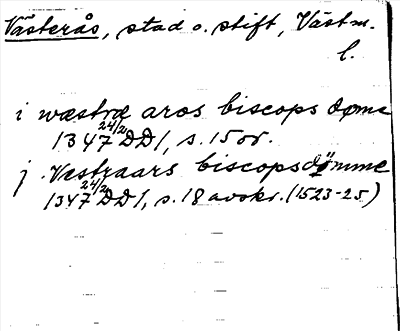 Västerås, stad o. stift, Västm.
l.
i wæstræ aros biscops døme
1347 24/2 DD 1, s. 15 or.
j Vestraars biscopsdömme
1347 24/2 DD 1, s. 18 avskr. (1523-25)